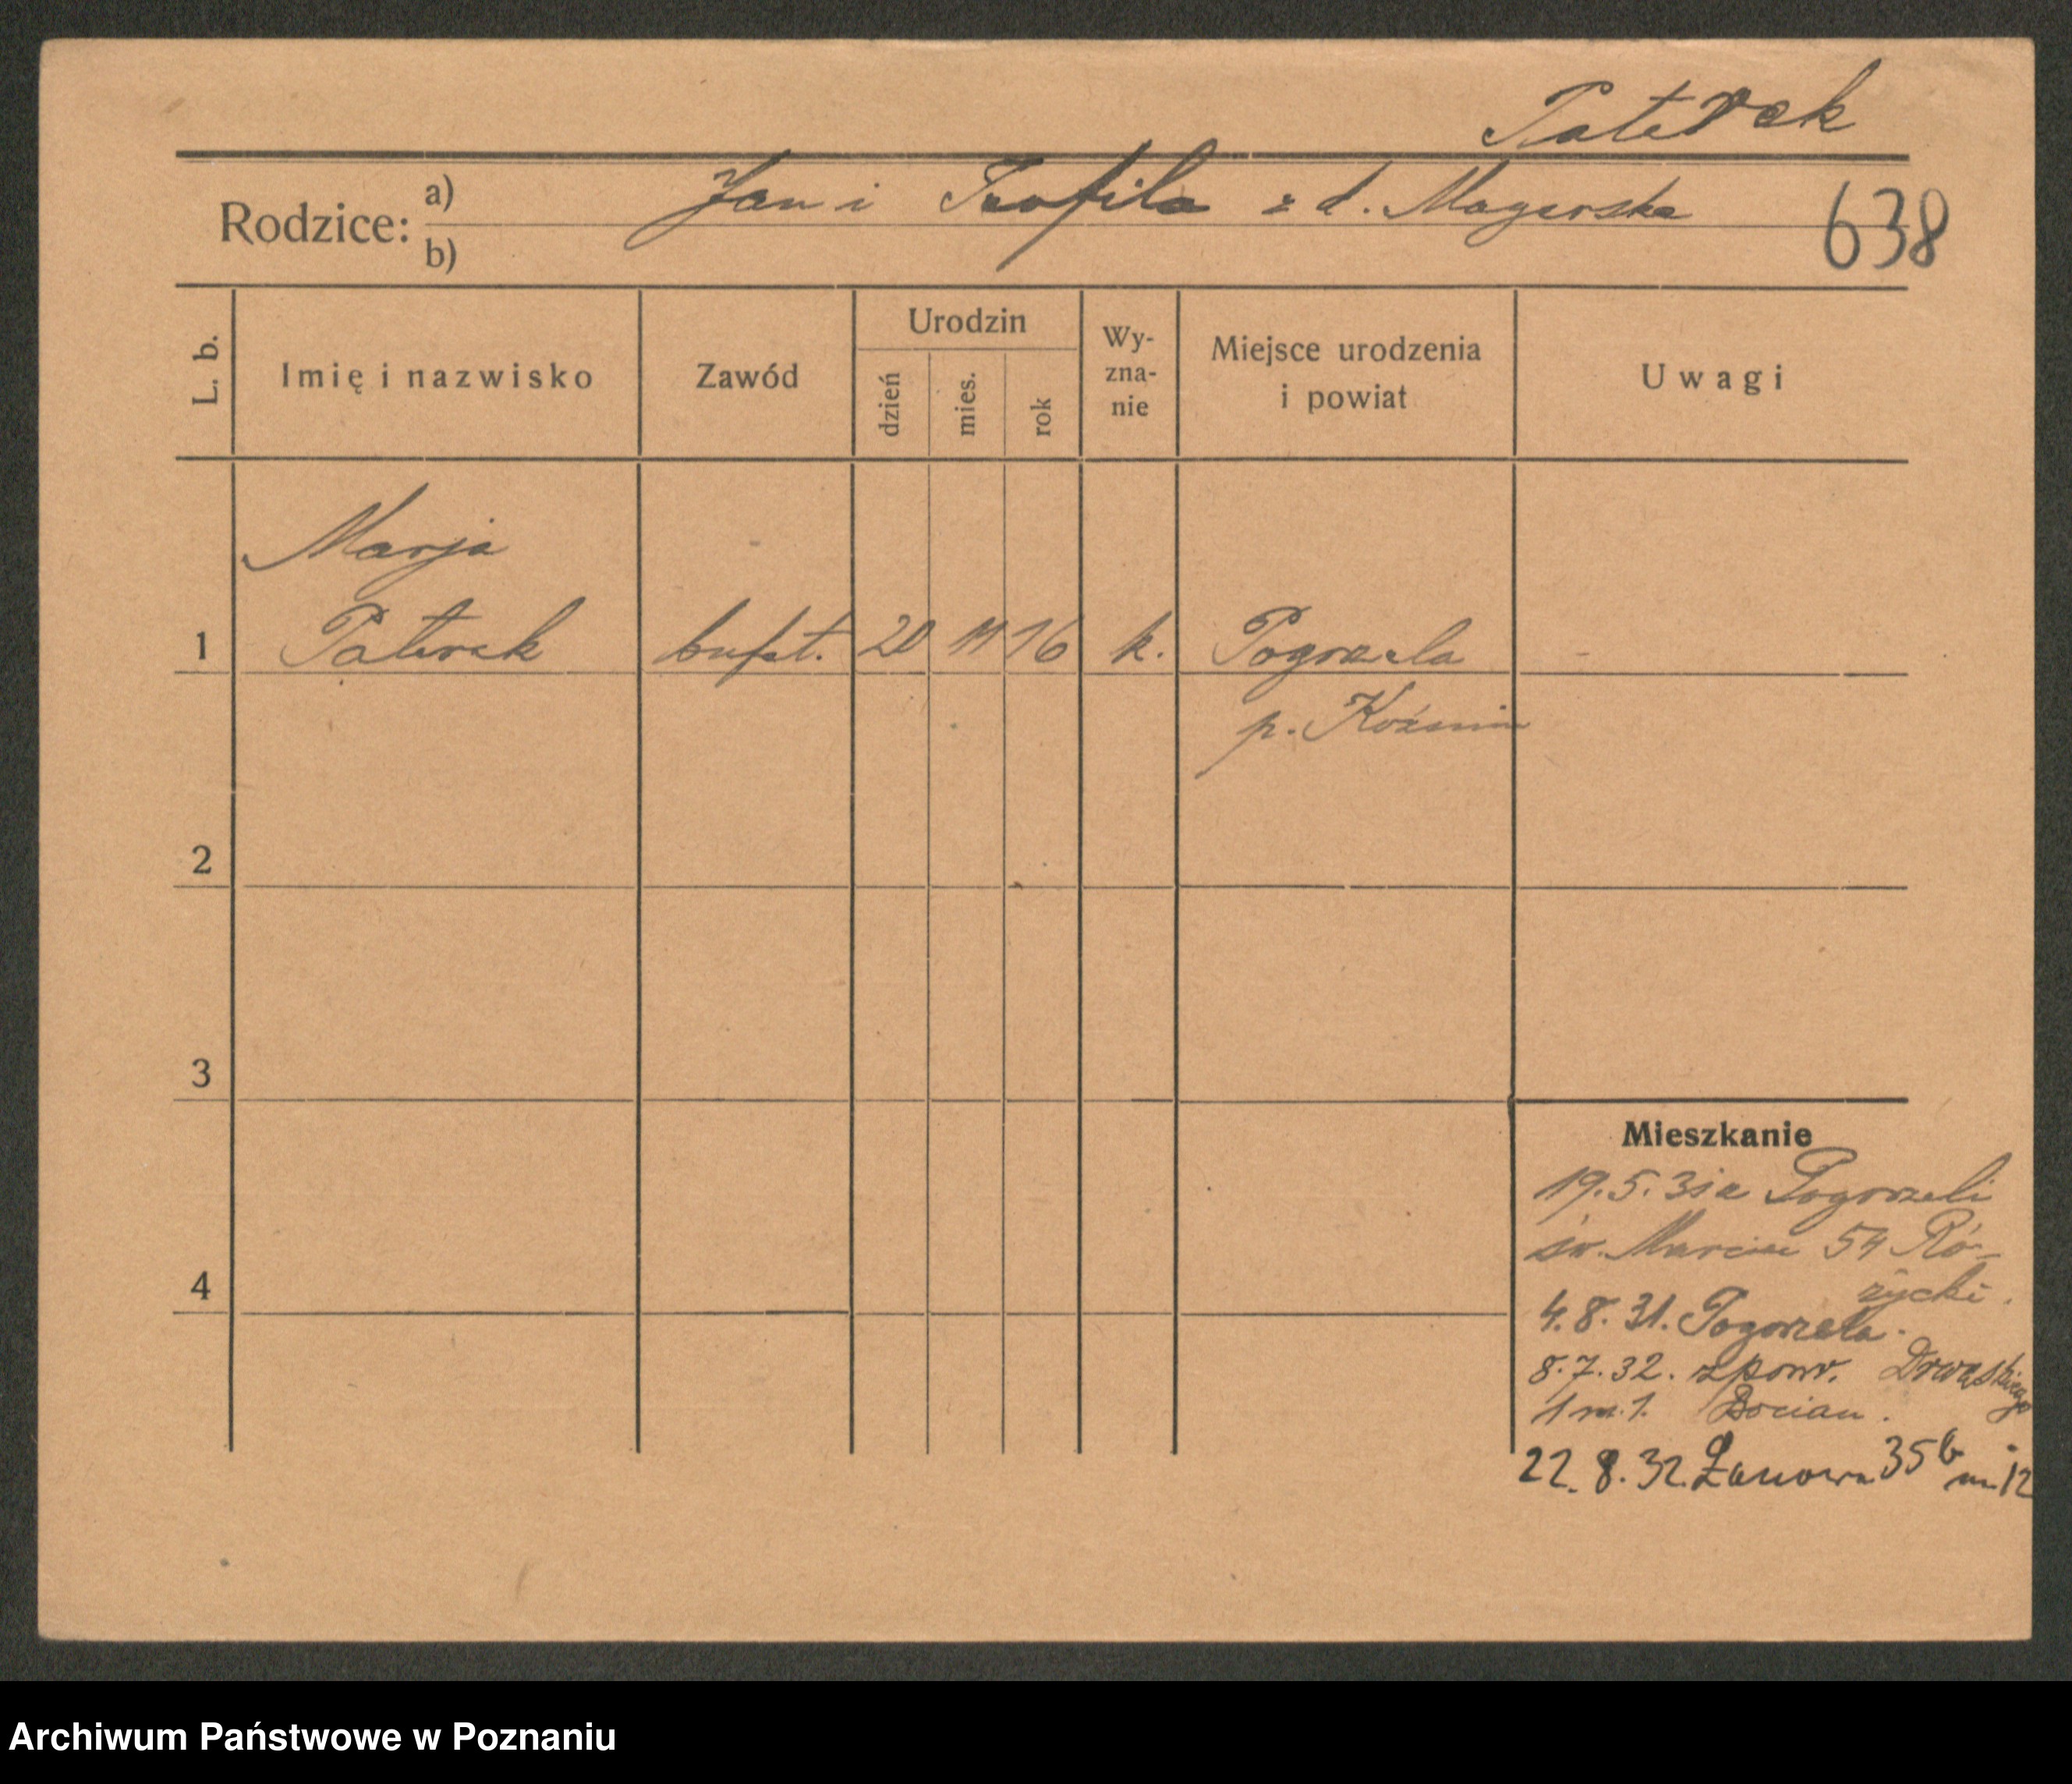 Paterek
Rodzice: a) Jan i Teofila z d. Magerska
b)
638
L. b.
Imię i nazwisko
Zawód
Urodzin
dzień
mies.
rok
Wy-
zna-
nie
Miejsce urodzenia
i powiat
Uwagi
Marja
1 Paterek bufet. 20 11 16 k. Pogorzela
p. Koźmin
2
3
4
Mieszkanie
19.5.31 z Pogorzeli
św. Marcin 54 Ró-
życki.
4.8.31. Pogorzela.
8.7.32. zpowr.
1 m. 1. Bocian.
22.8.32. Łanowa 35b m 12
Archiwum Państwowe w Poznaniu